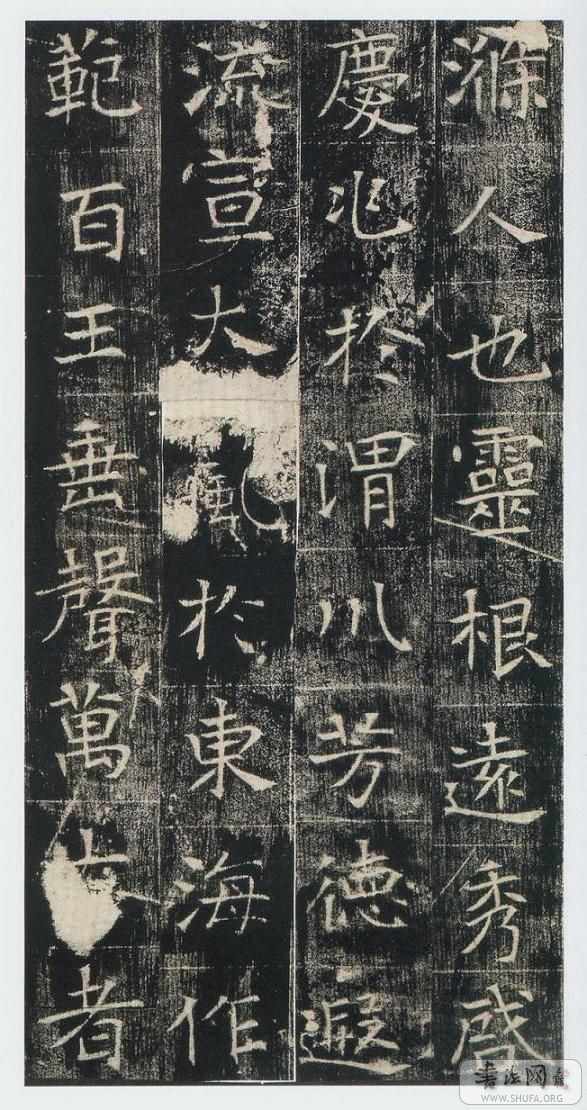 滌人也靈根遠秀啓
慶兆於渭川芳德遐
流宣大風於東海作
範百王垂聲萬古者
WWW.SHUFA.ORG